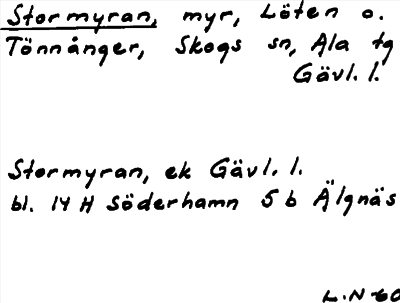 Stormyran, myr, Löten o.
Tönnånger, Skogs sn, Ala tg
Gävl. l.
Stormyran, ek Gävl. l.
bl. 14 H Söderhamn 5 b Älgnäs
L.N 60